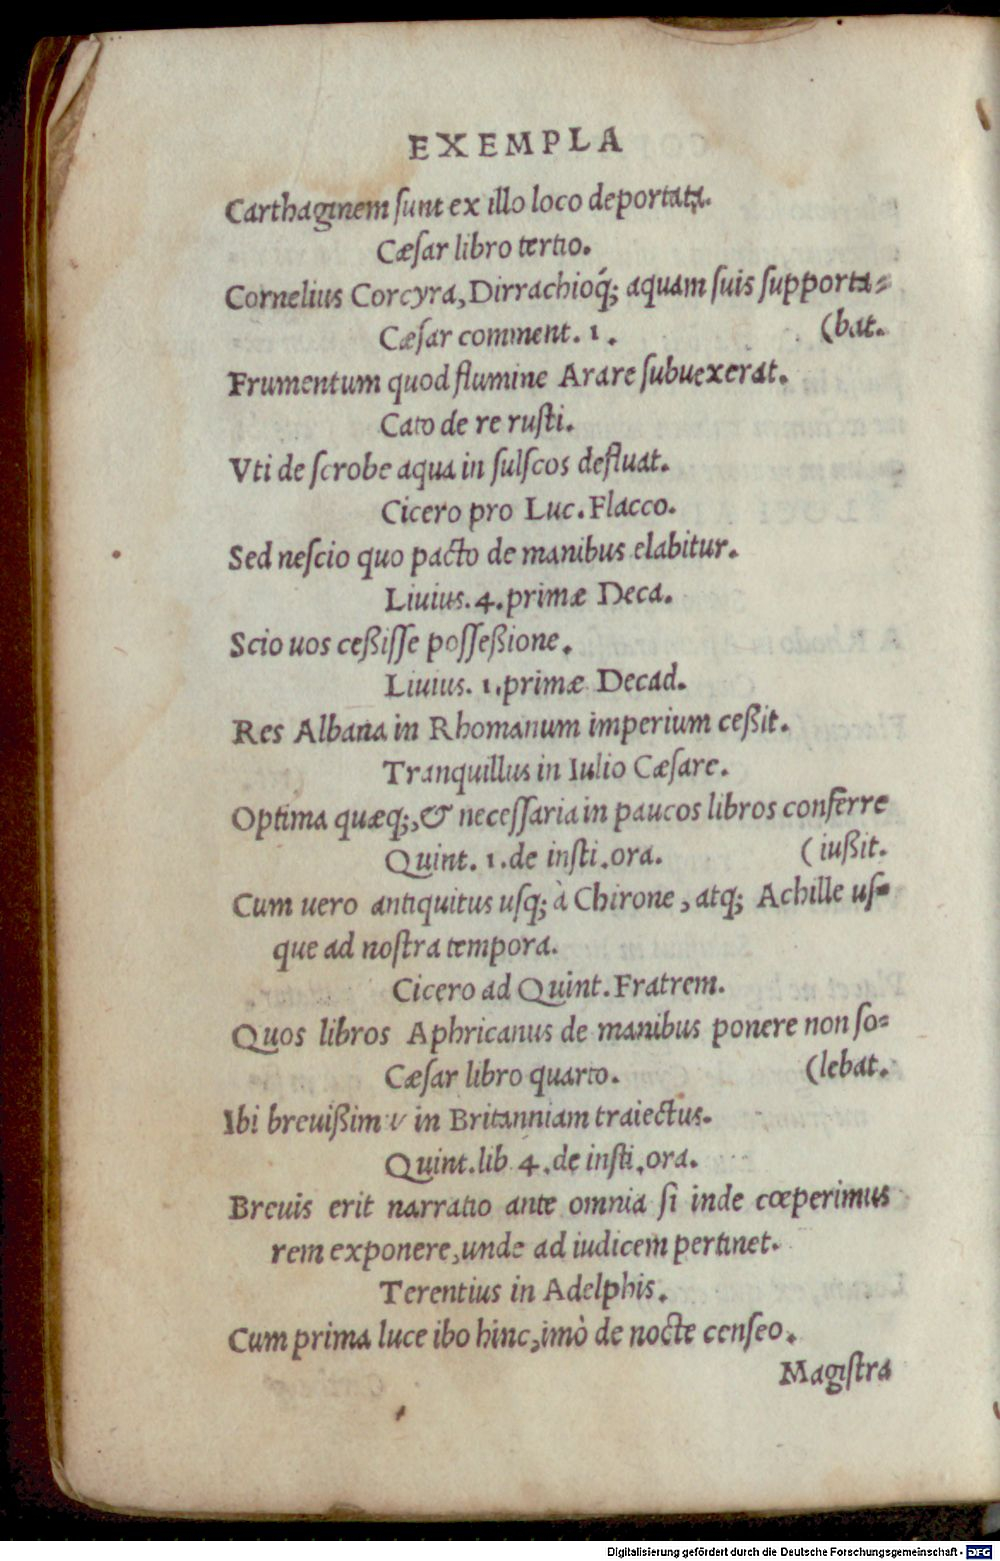 EXEMPLA
Carthaginem ſunt ex illo loco deportata.
Cæſar libro tertio.
Cornelius Corcyra, Dirrachioq́; aquam ſuis ſupporta=
Cæſar comment. 1. (bat.
Frumentum quod flumine Arare ſubuexerat.
Cato de re ruſti.
Vti de ſcrobe aqua in ſulſcos defluat.
Cicero pro Luc. Flacco.
Sed neſcio quo pacto de manibus elabitur.
Liuius. 4. primæ Deca.
Scio uos ceßiſſe poſſeßione.
Liuius. 1. primæ Decad.
Res Albana in Rhomanum imperium ceßit.
Tranquillus in Iulio Cæſare.
Optima quæq;, & neceſſaria in paucos libros conferre
Quint. 1. de inſti. ora. (iußit.
Cum uero antiquitus uſq; à Chirone, atq; Achille uſ=
que ad noſtra tempora.
Cicero ad Quint. Fratrem.
Quos libros Aphricanus de manibus ponere non ſo=
Cæſar libro quarto. (lebat.
Ibi breuißim in Britanniam traiectus.
Quint. lib 4. de inſti. ora.
Breuis erit narratio ante omnia ſi inde cœperimus
rem exponere, unde ad iudicem pertinet.
Terentius in Adelphis.
Cum prima luce ibo hinc, imò de nocte cenſeo.
Magiſtra
Digitalisierung gefördert durch die Deutsche Forschungsgemeinschaft - DFG